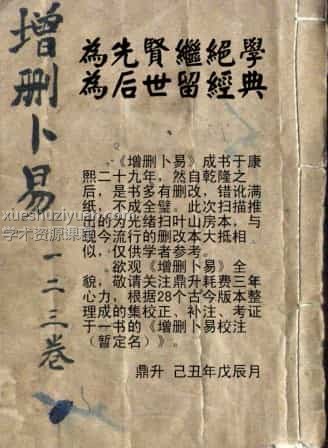 增删卜易
一二三卷
為先賢繼絕學
為后世留經典
《增删卜易》成书于康
熙二十九年，然自乾隆之
后，是书多有删改，错讹满
纸，不成全璧。此次扫描推
出的为光绪扫叶山房本，与
现今流行的删改本大抵相
似，仅供学者参考。
欲观《增删卜易》全
貌，敬请关注鼎升耗费三年
心力，根据28个古今版本整
理成的集校正、补注、考证
于一书的《增删卜易校注
（暂定名）》。
鼎升 己丑年戊辰月
xueshuziyuan.com